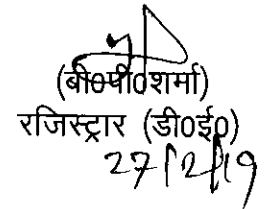 (बी०पी०शर्मा)
रजिस्ट्रार (डी०ई०)
27/2/19